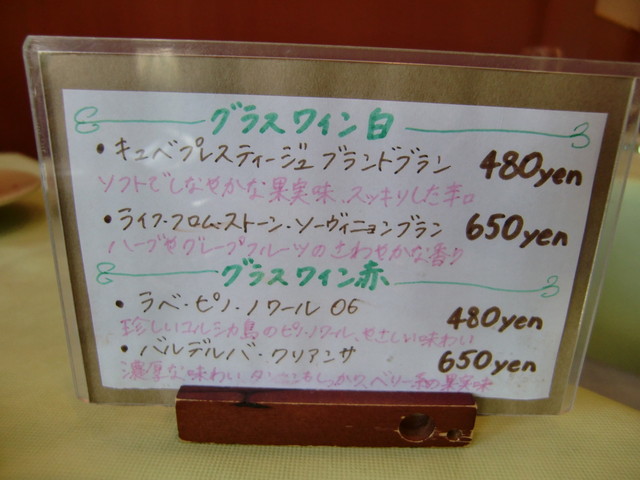 グラスワイン 白
・キュベプレスティージュ ブランドブラン 480yen
ソフトでしなやかな果実味、スッキリした辛口
・ライフ・フロム・ストーン・ソーヴィニョンブラン 650yen
ハーブやグレープフルーツのさわやかな香り
グラスワイン赤
・ラベ・ピノ・ノワール 06 480yen
珍しいコルシカ島のピノ・ノワール、やさしい味わい
・バルデルバ・クリアンサ 650yen
濃厚な味わい タンニンもしっかり、ベリー系の果実味